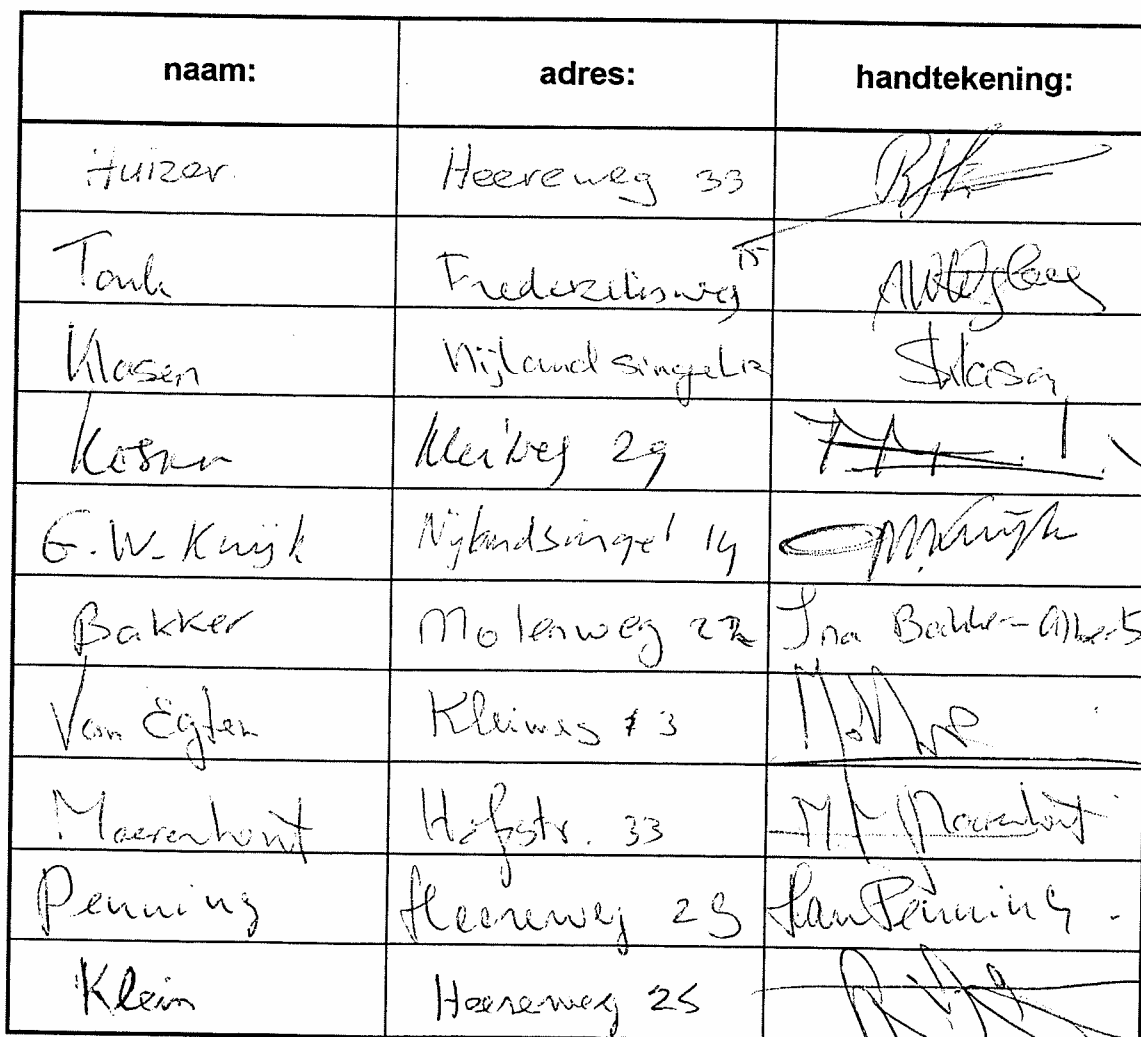 naam: adres: handtekening:
Huizer. Heereweg 33
Tonk 15
Klasen Nijlandsingel 12 SKlasen
Koeman Kleiweg 29
G.W. Knijk Nijlandsingel 14 Knijk
Bakker Molenweg 22 Ina Bakker-Alberts
Van Egten Kleiweg 3
Moerenhout Hofstr. 33 M.M. Moerenhout
Penning Heereweg 29 Penning.
Klein Heereweg 25